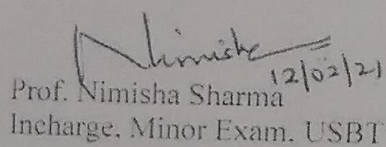 Nimisha
12/02/21
Prof. Nimisha Sharma
Incharge, Minor Exam, USBT